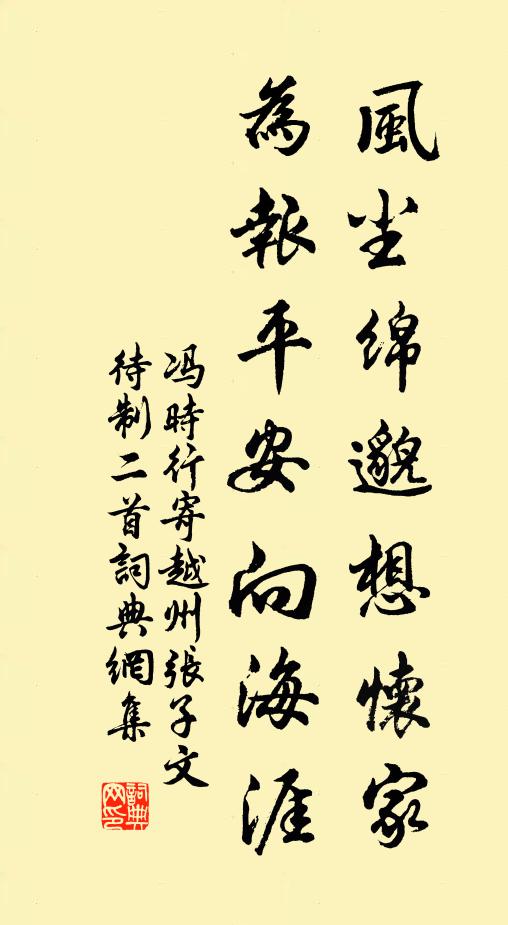 風尘绵邈想懷家
為報平安向海涯
冯時行寄越州張子文
待制二首詞典網集
詞典
网印